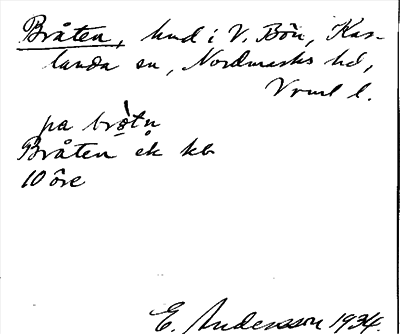 Bråten, hmd i V. Bön, Kas-
landa sn, Nordmarks hd,
Vrml l.
på brǫ̀tn̥
Bråten ek kb
10 öre
E. Andersson 1934.